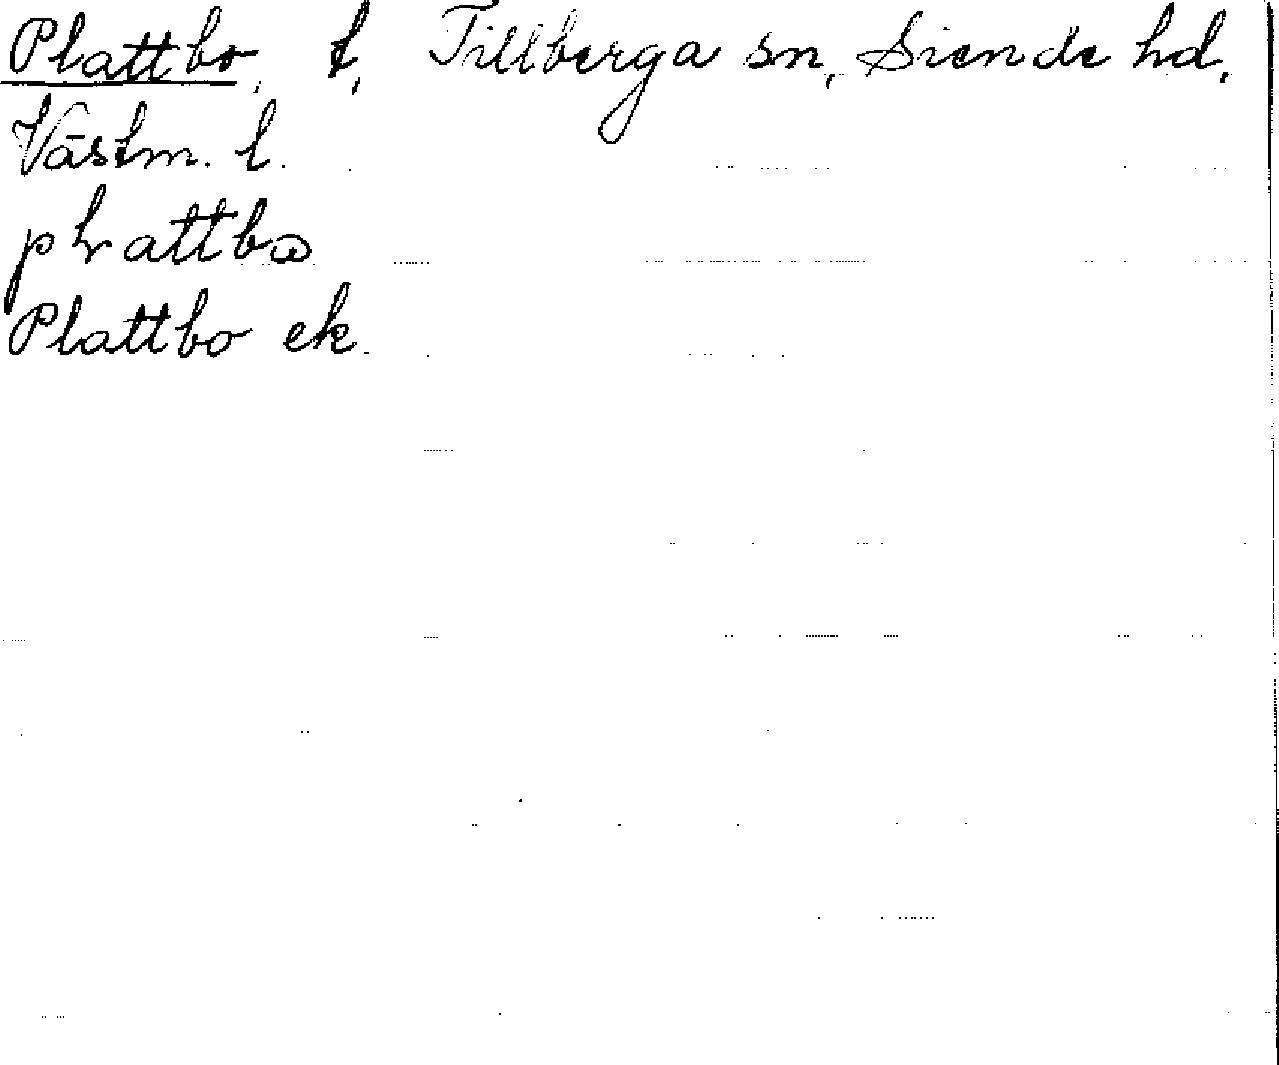 Plattbo, t, Tillberga sn, Siende hd,
Västm. l.
plattbω
Plattbo ek.